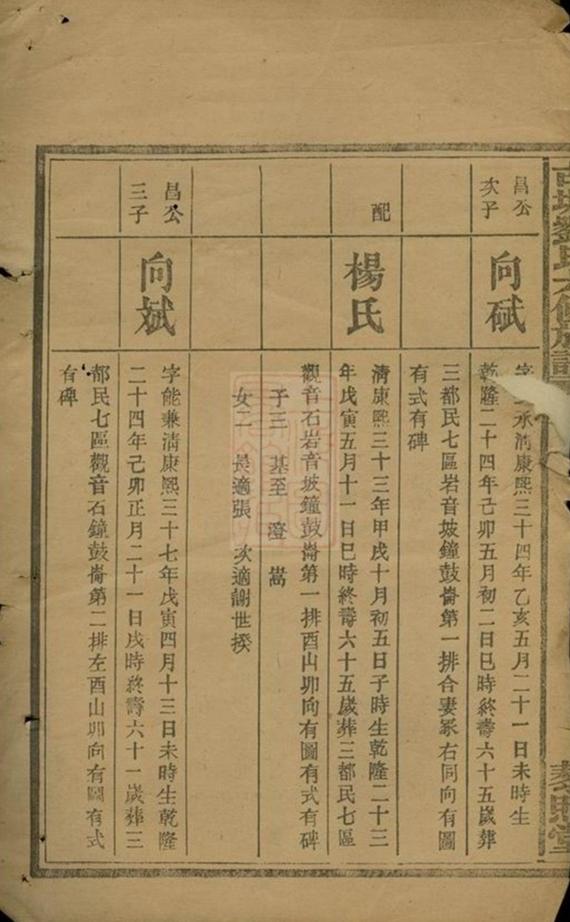 劉氏
修族
藜照堂
昌公
次子
向斌
字
永清康熙三十四年乙亥五月二十一日未時生
乾隆二十四年己卯五月初二日巳時終壽六十五歲葬
三都民七區岩音坡鐘鼓崙第一排合妻冢右同向有圖
有式有碑
配
楊氏
清康熙三十三年甲戌十月初五日子時生乾隆二十三
年戊寅五月十一日巳時終壽六十五歲葬三都民七區
觀音石岩音坡鐘鼓崙第一排酉山卯向有圖有式有碑
子三 基至 澄 嵩
女二 長適張 次適謝世揆
昌公
三子
向斌
字能兼清康熙三十七年戊寅四月十三日未時生乾隆
二十四年己卯正月二十一日戌時終壽六十一歲葬三
都民七區觀音石鐘鼓崙第二排左酉山卯向有圖有式
有碑